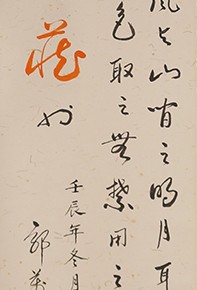 風与山間之明月耳
色取之無禁用之
壬辰年冬月
郭